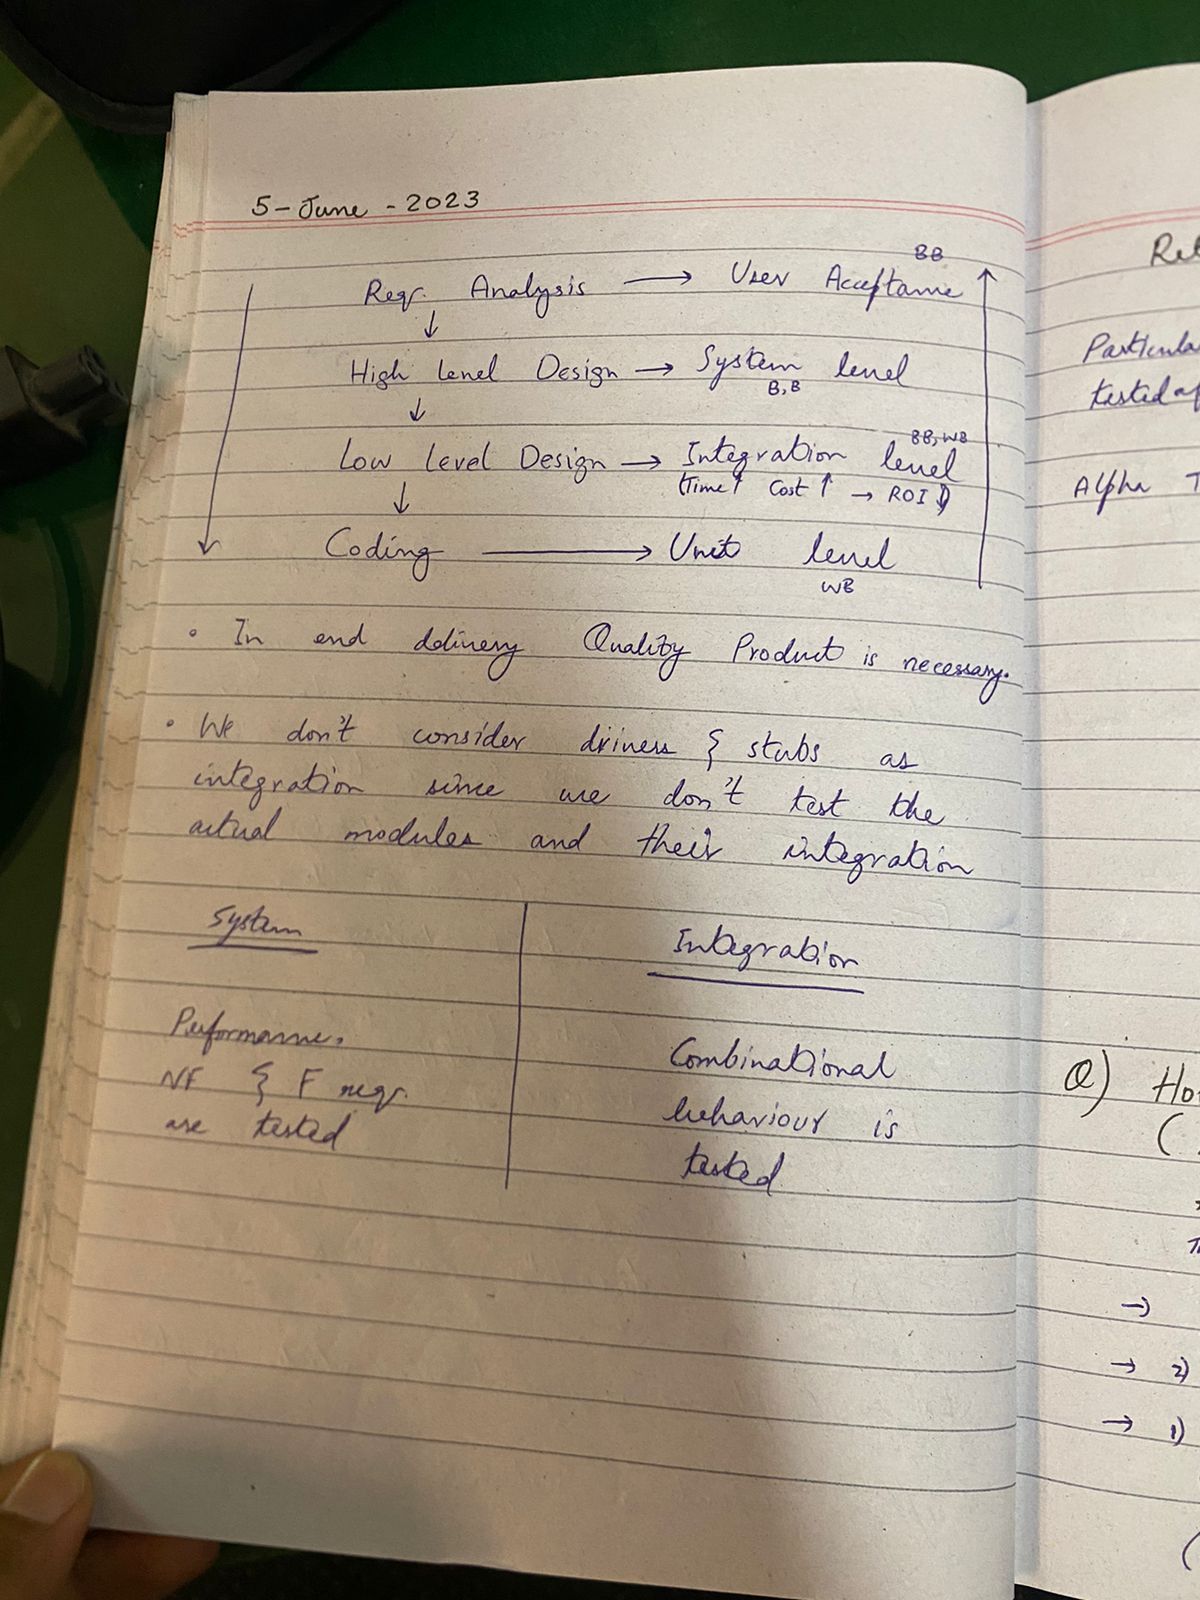 5-June-2023
BB
Reqr. Analysis → User Acceptance
↓
High Level Design → System level
B,B
↓
BB, WB
Low Level Design → Integration level
(Time↑ Cost ↑ → ROI ↓)
↓
Coding → Unit level
WB
• In end delivery Quality Product is necessary.
• We don't consider drivers & stubs as
integration since we don't test the
actual modules and their integration
System
Integration
Performance.
NF & F reqr.
are tested
Combinational
behaviour is
tested
Particula
tested
Alpha T
Q) Ho
(
→
→ 2)
→ 1)
(